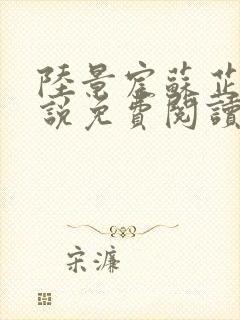 陸景宧蘇芷
說免費閱讀
宋濂